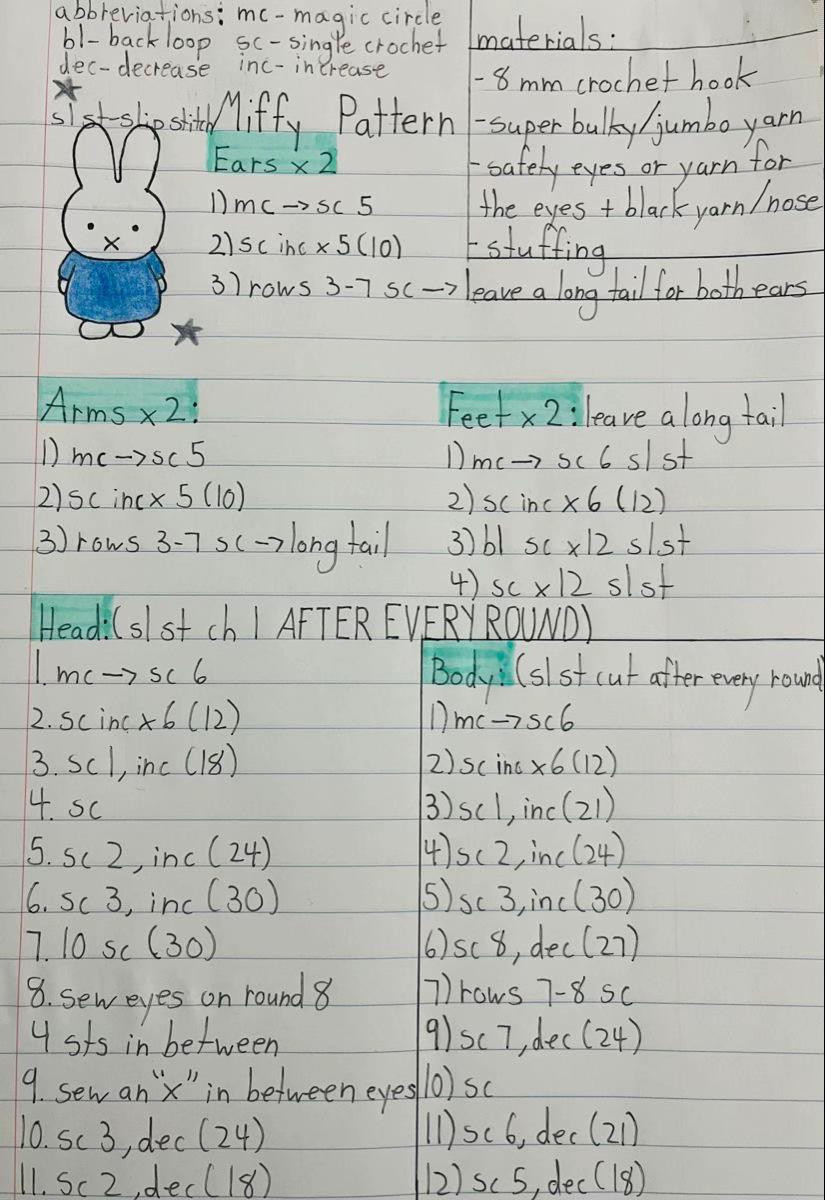 abbreviations: mc - magic circle
bl - back loop sc - single crochet
dec - decrease inc - increase
sl st - slip stitch
Miffy Pattern
materials:
- 8 mm crochet hook
- super bulky/jumbo yarn
- safety eyes or yarn for
the eyes + black yarn/nose
- stuffing
Ears x 2
1) mc → sc 5
2) sc inc x 5 (10)
3) rows 3-7 sc → leave a long tail for both ears
Arms x 2:
1) mc → sc 5
2) sc inc x 5 (10)
3) rows 3-7 sc → long tail
Feet x 2: leave a long tail
1) mc → sc 6 sl st
2) sc inc x 6 (12)
3) bl sc x12 sl st
4) sc x12 sl st
Head: (sl st ch 1 AFTER EVERY ROUND)
1. mc → sc 6
2. sc inc x 6 (12)
3. sc 1, inc (18)
4. sc
5. sc 2, inc (24)
6. sc 3, inc (30)
7. 10 sc (30)
8. sew eyes on round 8
4 sts in between
9. sew an "x" in between eyes
10. sc 3, dec (24)
11. sc 2, dec (18)
Body: (sl st cut after every round
1) mc → sc 6
2) sc inc x 6 (12)
3) sc 1, inc (21)
4) sc 2, inc (24)
5) sc 3, inc (30)
6) sc 8, dec (27)
7) rows 7-8 sc
9) sc 7, dec (24)
10) sc
11) sc 6, dec (21)
12) sc 5, dec (18)